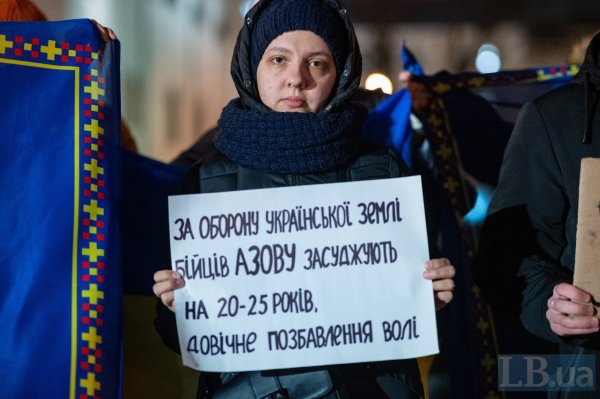 ЗА ОБОРОНУ УКРАЇНСЬКОЇ ЗЕМЛІ
БІЙЦІВ АЗОВУ ЗАСУДЖУЮТЬ
НА 20-25 РОКІВ,
ДОВІЧНЕ ПОЗБАВЛЕННЯ ВОЛІ
LB.ua